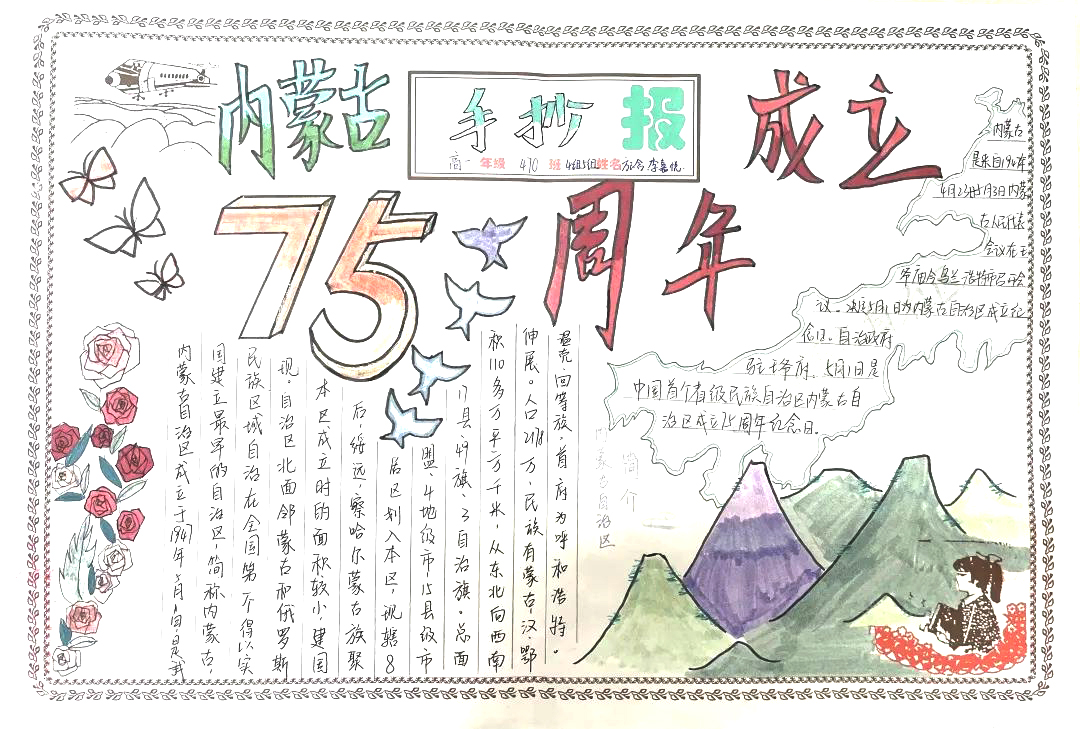 内蒙古
手抄报
成立
高一 年级 470 班 4组5组姓名 李嘉悦
75周年
内蒙古自治区成立于1947年5月1日,是我
国建立最早的自治区,简称内蒙古,
民族区域自治在全国第一个得以实
现。自治区北面邻蒙古和俄罗斯
本区成立时的面积较小,建国
后,绥远,察哈尔蒙古族聚
居区划入本区,现辖8
盟,4地级市15县级市
17县,49旗,3自治旗。总面
积110多万平方千米,从东北向西南
伸展。人口2178万,民族有蒙古,汉,鄂
温克,回等族,首府为呼和浩特。
内蒙古自治区
简介
内蒙古
是来自1947年
4月23至5月3日内蒙
古人民代表
会议在王
爷庙今乌兰浩特市召开会
议。决定5月1日为内蒙古自治区成立纪
念日。自治政府
驻王爷府。5月1日是
中国首个省级民族自治区内蒙古自
治区成立75周年纪念日。